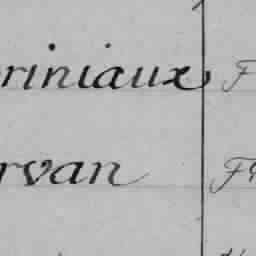 riniaux F
rvan